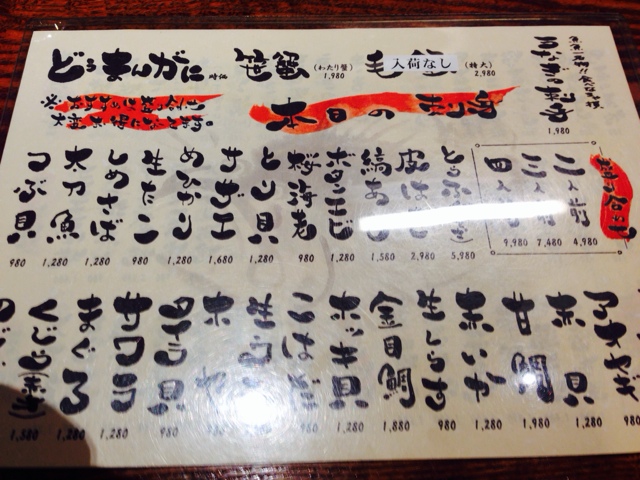 どろまんがに 時価
笹蟹 (わたり蟹) 1,980
毛 入荷なし (特大) 2,980
うなぎの刺身 1,980
本日の刺身
二人前 4,980
三人前 7,480
四人前 9,980
とらふぐ 5,980
皮はぎ 2,980
縞あじ 1,580
ボタンエビ 1,280
桜海老 980
とり貝 1,280
サザエ 1,680
めひかり 1,280
生たこ 980
しめさば 1,280
太刀魚 1,280
つぶ貝 980
アオヤギ 980
赤貝 1,280
甘鯛 1,980
赤いか 1,280
生しらす 980
金目鯛 1,880
ホッキ貝 1,280
こはだ 980
生
タイラ貝 980
サワラ 1,280
まぐろ 1,280
くじら(赤身) 1,580